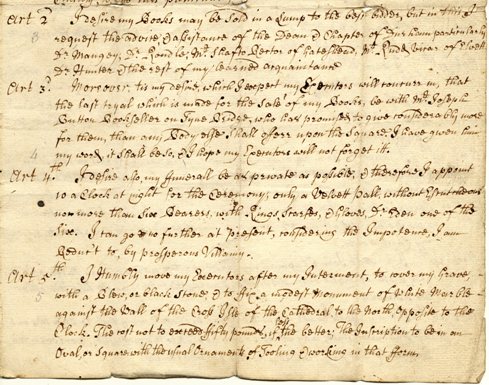 Art 2d I desire my Books may be Sold in a Lump to the best bidder, but in this I
3 request the advice & assistance of the Dean & Chapter of Durham particularly
Dr. Mangey, Dr. Rundle, Mr. Shafto, Rector of Gateshead, Mr. Rudd, Vicar of
Dr. Hunter & the rest of my learned acquaintance
Art 3d. Moreover, tis my desire, which I expect my Executors will concurr in, that
the last tryal which is made for the Sale of my Books, be with Mr. Joseph
Button Bookseller on Tyne Bridge, who has promised to give considerably more
for them, than any Body else shall offerr upon the Square; I have given him
4 my word, it shall be so, & I hope my Executors will not forget it.
Art 4.th I desire also, my funeral be as private as posible, & therefore I appoint
10 a Clock at night for the Ceremony, only a Velvett Pall, without Escutcheons
now more than Six Bearers, with Rings, Scarfes, & Gloves, Dr. Eden one of the
Six. I can go no further at present, considering the Impotence, I am
Reduc't to, by prosperous Villainy.
Art 5.th I Humbly move my Executors after my Interment, to cover my Grave,
5 with a Blew, or black Stone, & to fix a modest Monument of White Marble
against the Wall of the Cross Isle of the Cathedral to the North, opposite to the
Clock. The cost not to exceed fifty pounds, if less the better; The Inscription to be in an
Oval, or Square with the usual Ornaments of Tooling & working in that form.